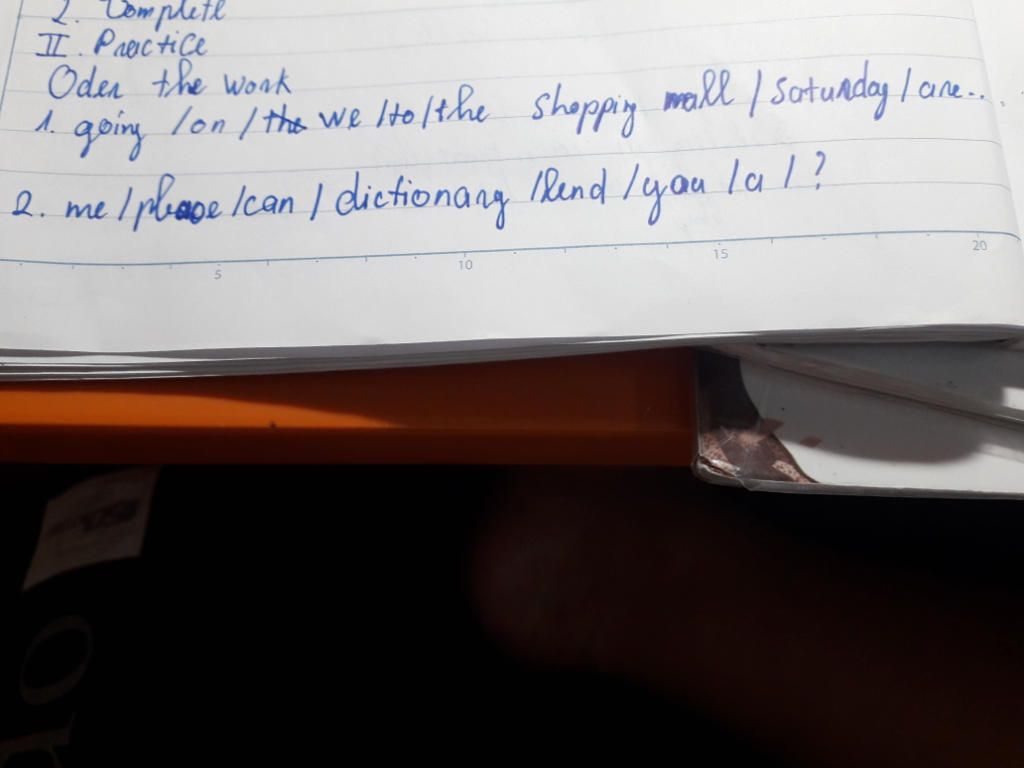 2. Complete
II. Practice
Oder the work
1. going /on / the we /to/the shopping mall / saturday / are...
2. me / please /can / dictionary /lend /you /a / ?
5 10 15 20